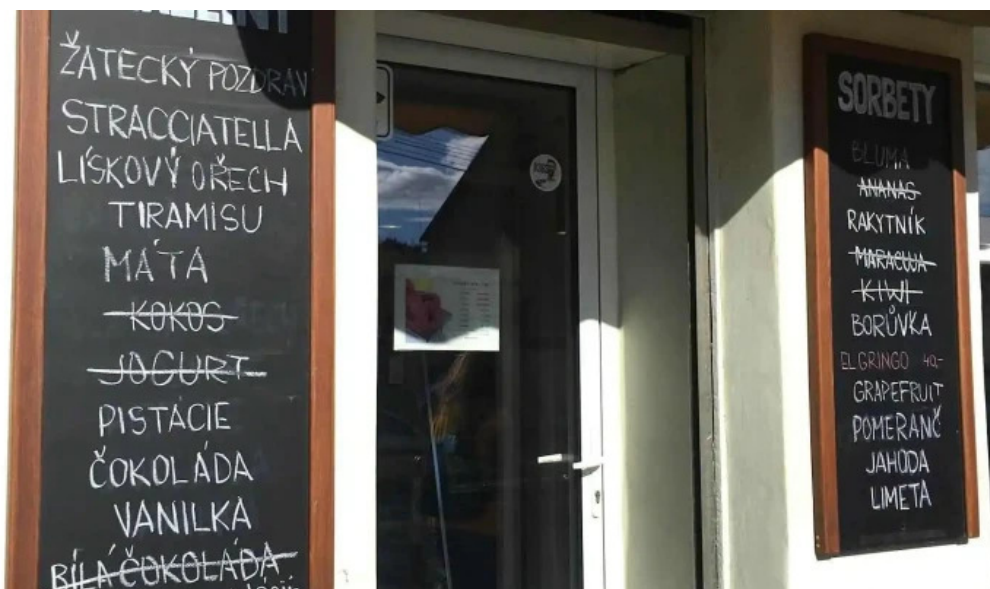 ŽATECKÝ POZDRAV
STRACCIATELLA
LÍSKOVÝ OŘECH
TIRAMISU
MÁTA
KOKOS
JOGURT
PISTÁCIE
ČOKOLÁDA
VANILKA
BÍLÁ ČOKOLÁDA
SORBETY
BLUMA
ANANAS
RAKYTNÍK
MARACUJA
KIWI
BORŮVKA
EL GRINGO 40,-
GRAPEFRUIT
POMERANČ
JAHODA
LIMETA